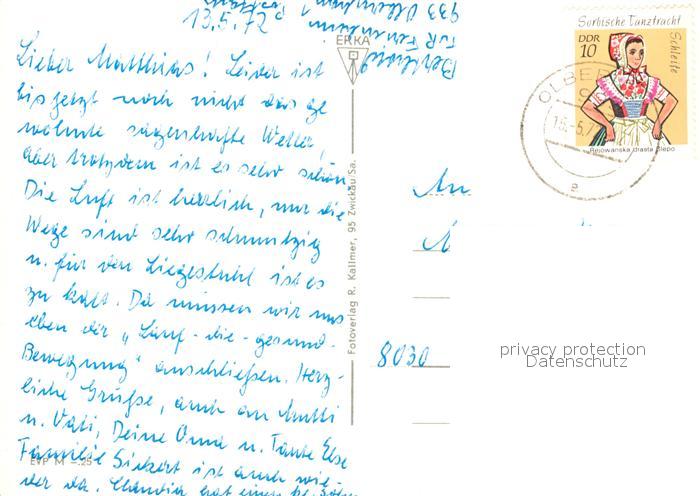 13.5.72
933 Olbernhau
Lieber Matthias! Leider ist
bis jetzt noch nicht das ge
wohnte sagenhafte Wetter,
aber trotzdem ist es sehr schön.
Die Luft ist herrlich, nur die
Wege sind sehr schmutzig
u. für den Liegestuhl ist es
zu kalt. Da müssen wir uns
eben der „Lauf-die-gesund-
Bewegung" anschließen. Herz-
liche Grüße, auch an Mutti
u. Vati, Deine Oma u. Tante Else
Familie Sickert ist auch wie-
der da. Claudia hat einen
EVP M –.25
ERKA
Fotoverlag R. Kallmer, 95 Zwickau/Sa.
Sorbische Tanztracht
Schleife
DDR
10
Rejowanska drasta Slepo
OLBER
15.-5.7
a
An
8030
privacy protection
Datenschutz